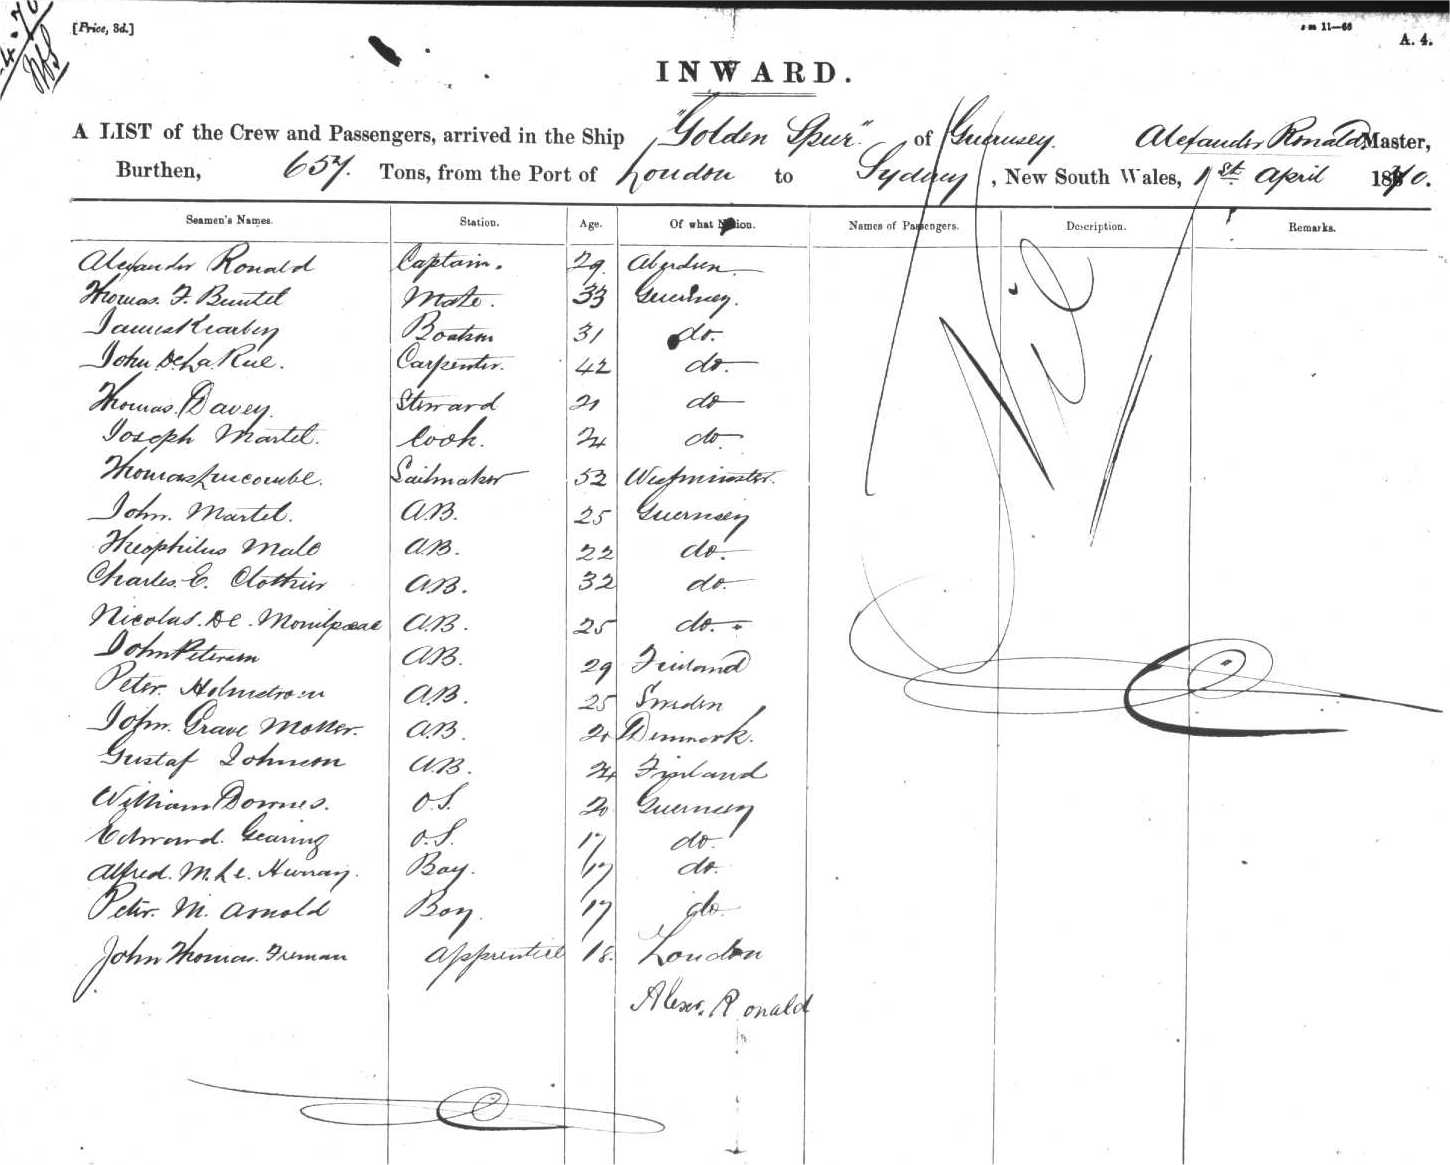 4.70
[Price, 3d.]
11—66
A. 4.
INWARD.
A LIST of the Crew and Passengers, arrived in the Ship "Golden Spur" of Guernsey. Alexander Ronald Master,
Burthen, 657. Tons, from the Port of London to Sydney, New South Wales, 1st April 1870.
Seamen's Names. Station. Age. Of what Nation. Names of Passengers. Description. Remarks.
Alexander Ronald Captain. 29 Aberdeen
Thomas. F. Buntel Mate. 33 Guernsey.
James Kearley Boatsn 31 do.
John De La Rue. Carpenter. 42 do.
Thomas. Davey. Steward 21 do
Joseph Martel. Cook. 24 do.
Thomas Luscombe. Sailmaker 52 Westminster.
John. Martel. A.B. 25 Guernsey
Theophilus Male A.B. 22 do.
Charles. E. Clothier A.B. 32 do.
Nicolas. De. A.B. 25 do.
John Peterson A.B. 29 Finland
Peter. Holmstrom A.B. 25 Sweden
John. Grave Moller. A.B. 20 Denmark.
Gustaf Johnson A.B. 24 Finland
William Downes. O.S. 20 Guernsey
Edward. Gearing O.S. 17 do.
Alfred. M. Le. Huray. Boy. 17 do.
Peter. M. Arnold Boy. 17 do
John Thomas. Freman Apprentice 18. London
Nil
Alexr. Ronald